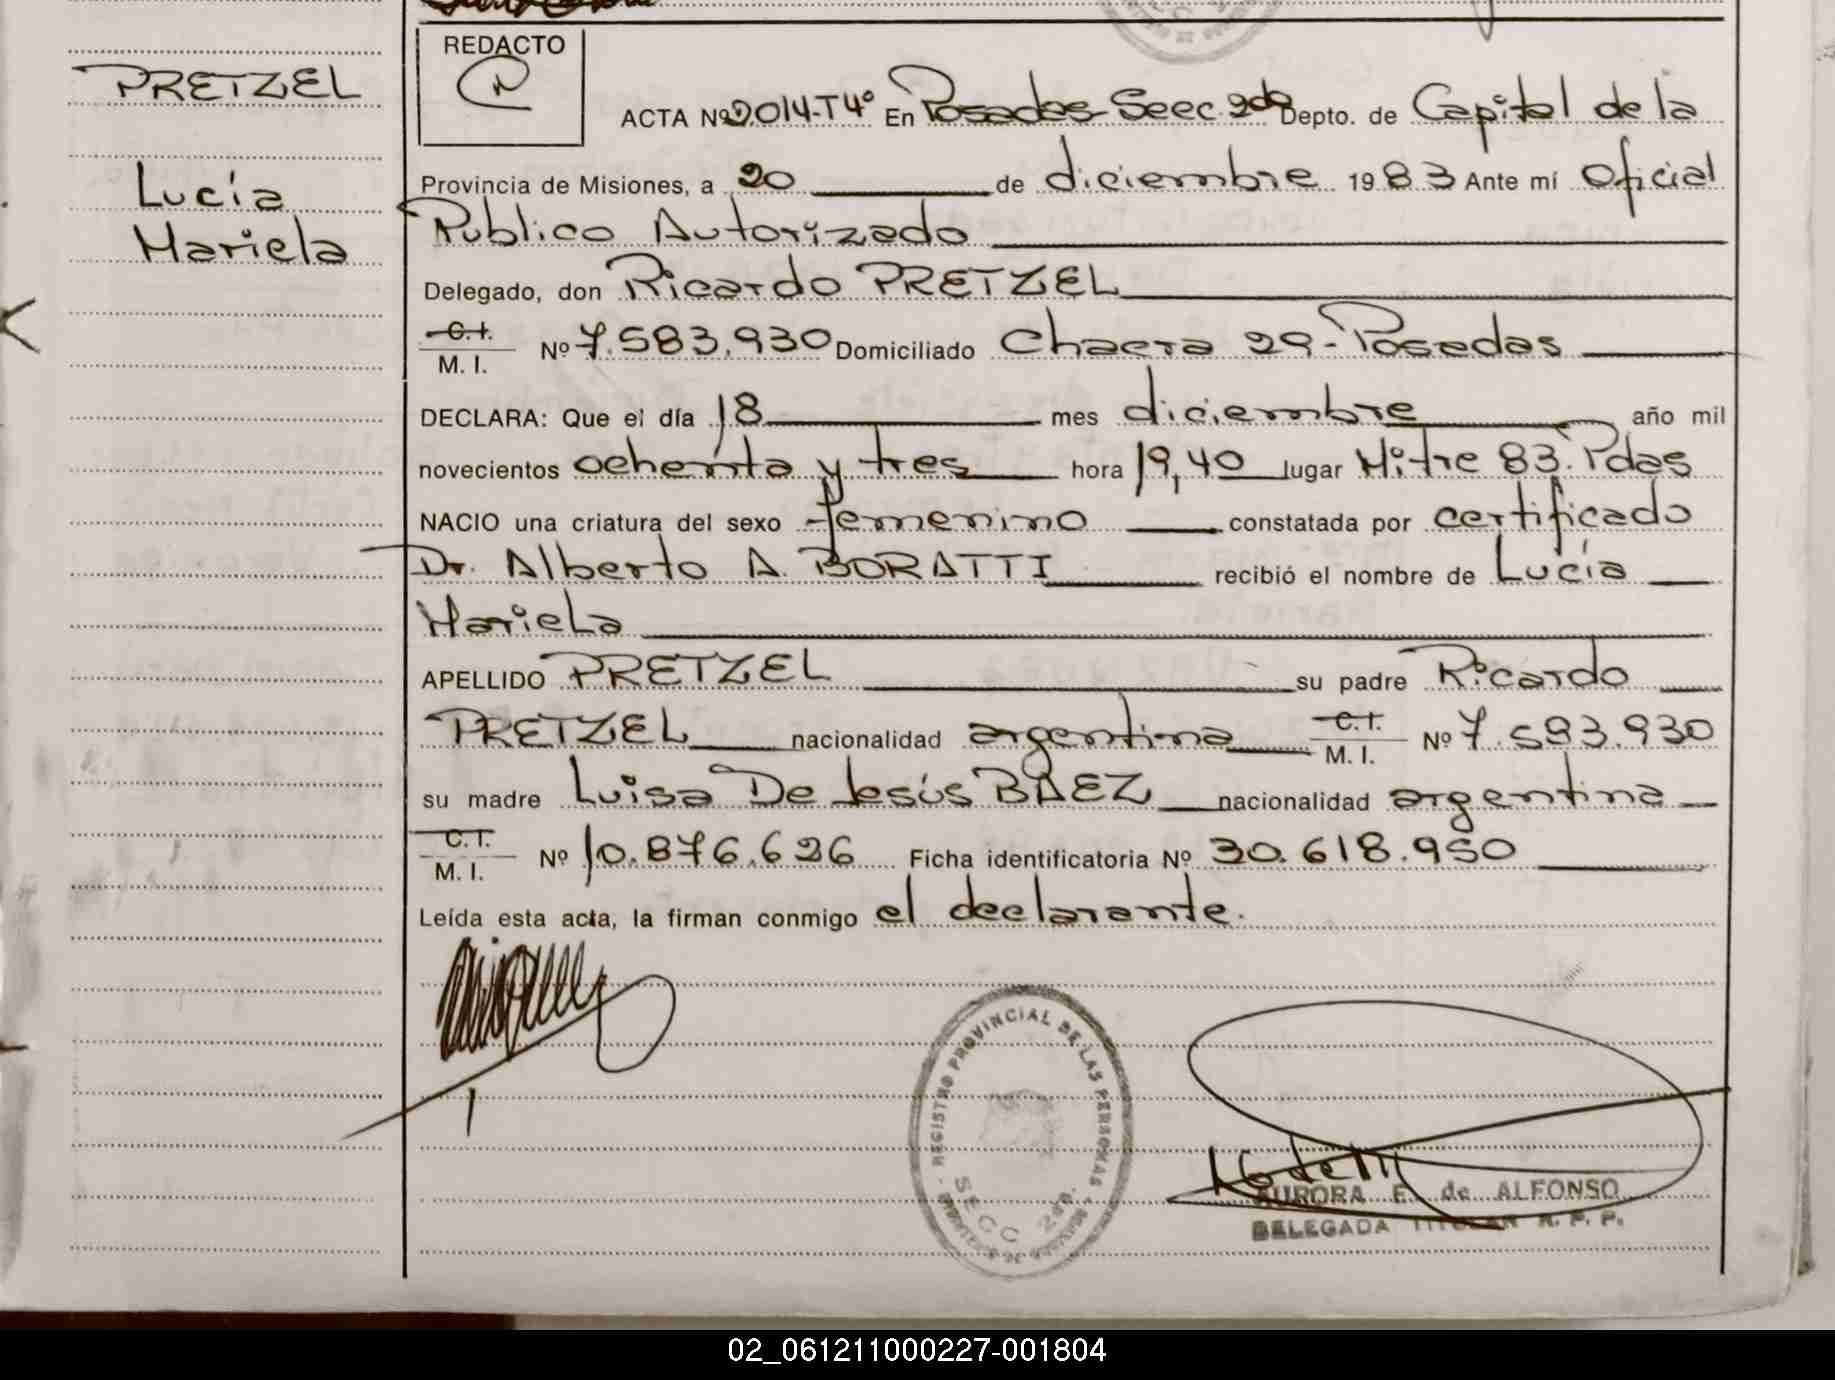 REDACTO
PRETZEL
Lucía
Mariela
ACTA Nº 2.014-T4º En Posadas-Secc. 2da Depto. de Capital de la
Provincia de Misiones, a 20 de diciembre 1983 Ante mí Oficial
Publico Autorizado
Delegado, don Ricardo PRETZEL
C.I.
M. I. Nº 7.583.930 Domiciliado Chacra 29-Posadas
DECLARA: Que el día 18 mes diciembre año mil
novecientos ochenta y tres hora 19,40 lugar Mitre 83. Pdas
NACIO una criatura del sexo femenino constatada por certificado
Dr. Alberto A. BORATTI recibió el nombre de Lucía
Mariela
APELLIDO PRETZEL su padre Ricardo
PRETZEL nacionalidad argentina C.I. M. I. Nº 7.593.930
su madre Luisa De Jesús BAEZ nacionalidad argentina
C.I.
M. I. Nº 10.876.626 Ficha identificatoria Nº 30.618.950
Leída esta acta, la firman conmigo el declarante.
REGISTRO PROVINCIAL DE LAS PERSONAS
SECC 2da.
AURORA E. de ALFONSO
DELEGADA TITULAR R. P. P.
02_061211000227-001804